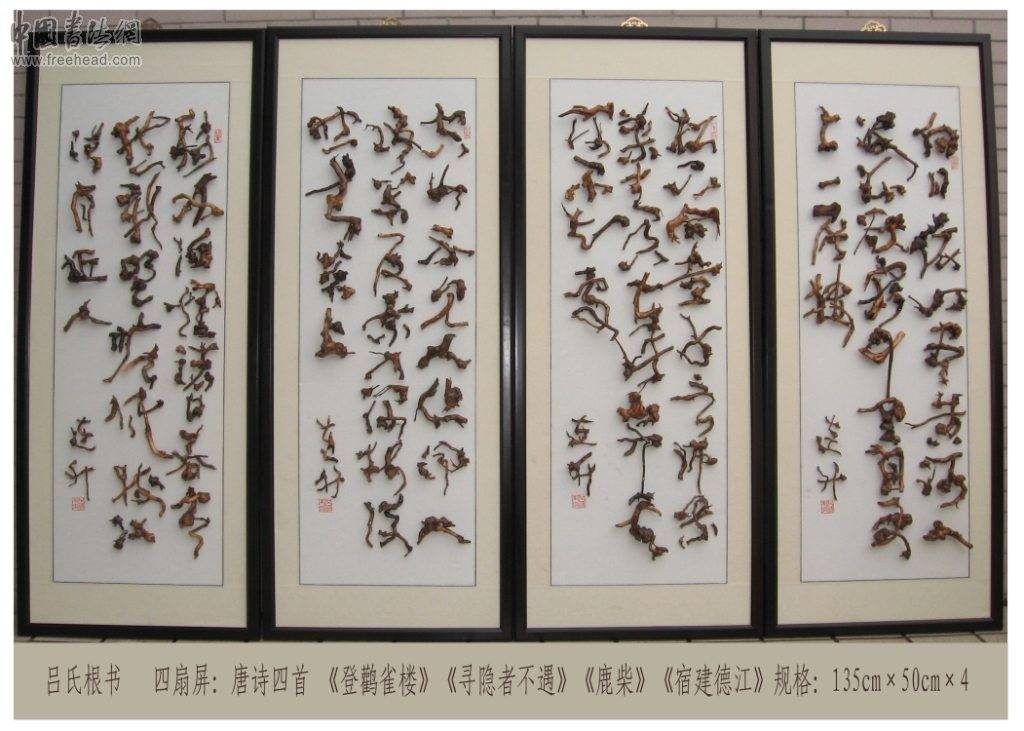 中国书法網
www.freehead.com
白日依山尽黄河入
海流欲穷千里目更
上一层楼
连升
松下问童子言师采
药去只在此山中云
深不知处
连升
空山不见人但闻人
语响返景入深林复
照青苔上
连升
移舟泊烟渚日暮客
愁新野旷天低树江
清月近人
连升
吕氏根书 四扇屏：唐诗四首 《登鹳雀楼》《寻隐者不遇》《鹿柴》《宿建德江》规格：135cm×50cm×4